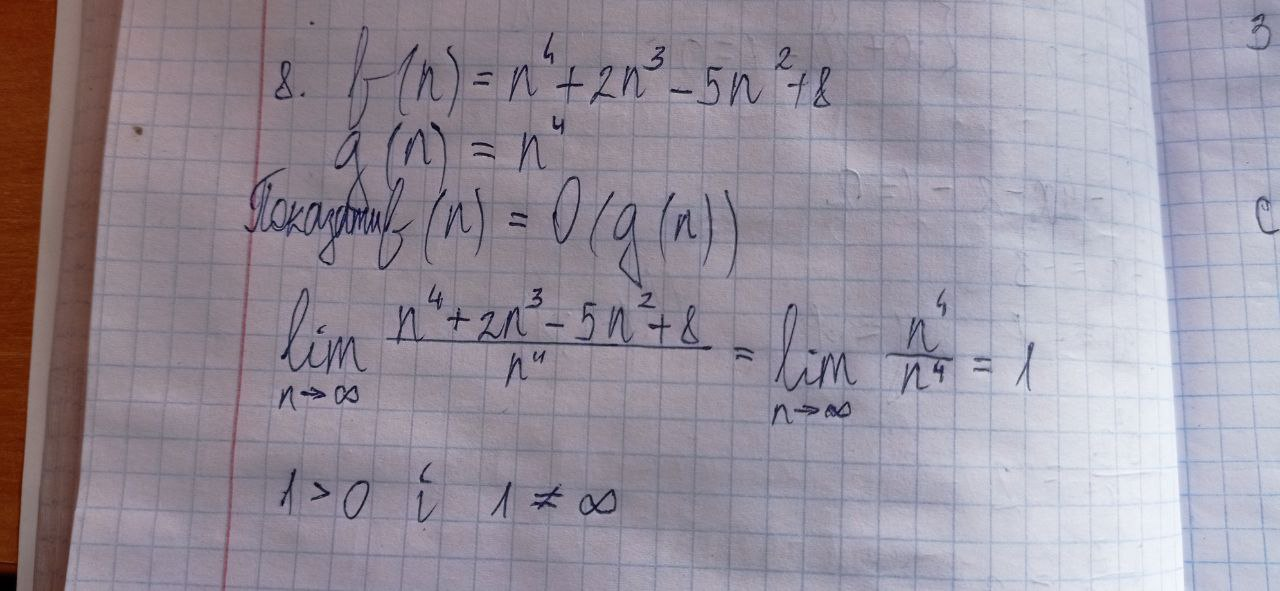 8. f(n) = n⁴ + 2n³ - 5n² + 8
g(n) = n⁴
Показати f(n) = O(g(n))
lim n→∞ (n⁴ + 2n³ - 5n² + 8)/n⁴ = lim n→∞ n⁴/n⁴ = 1
1 > 0 і 1 ≠ ∞
3
С